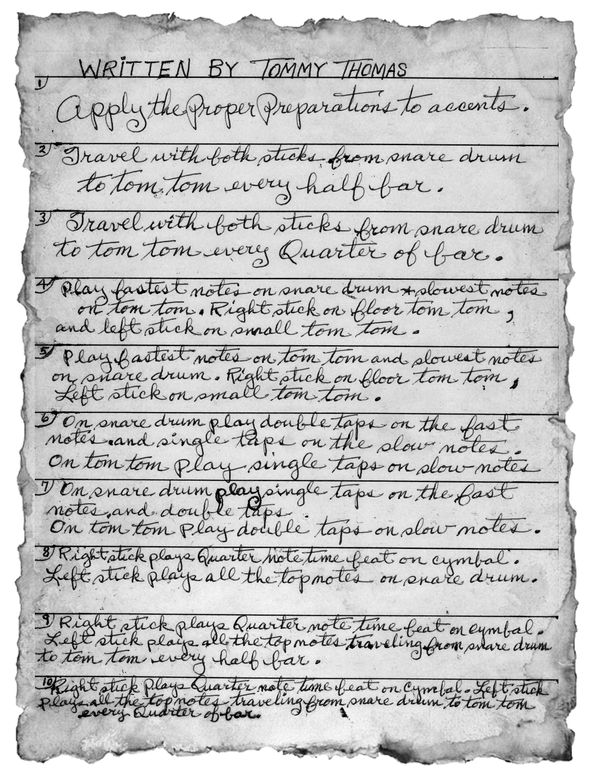 WRITTEN BY TOMMY THOMAS
1) Apply the Proper Preparations to accents.
2) Travel with both sticks from snare drum
to tom tom every half bar.
3) Travel with both sticks from snare drum
to tom tom every Quarter of bar.
4) Play fastest notes on snare drum + slowest notes
on tom tom. Right stick on floor tom tom,
and left stick on small tom tom.
5) Play fastest notes on tom tom and slowest notes
on snare drum. Right stick on floor tom tom,
Left stick on small tom tom.
6) On snare drum play double taps on the fast
notes and single taps on the slow notes.
On tom tom Play single taps on slow notes
7) On snare drum play single taps on the fast
notes and double taps.
On tom tom Play double taps on slow notes.
8) Right stick plays Quarter note time beat on cymbal.
Left stick plays all the top notes on snare drum.
9) Right stick plays Quarter note time beat on cymbal.
Left stick plays all the top notes traveling from snare drum
to tom tom every half bar.
10) Right stick Plays Quarter note time beat on Cymbal. Left stick
Plays all the top notes traveling from snare drum to tom tom
every Quarter of bar.